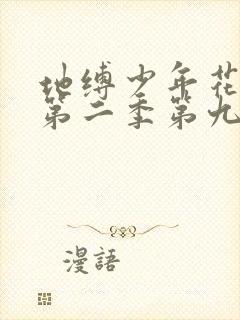 地缚少年花
第二季第九
漫語